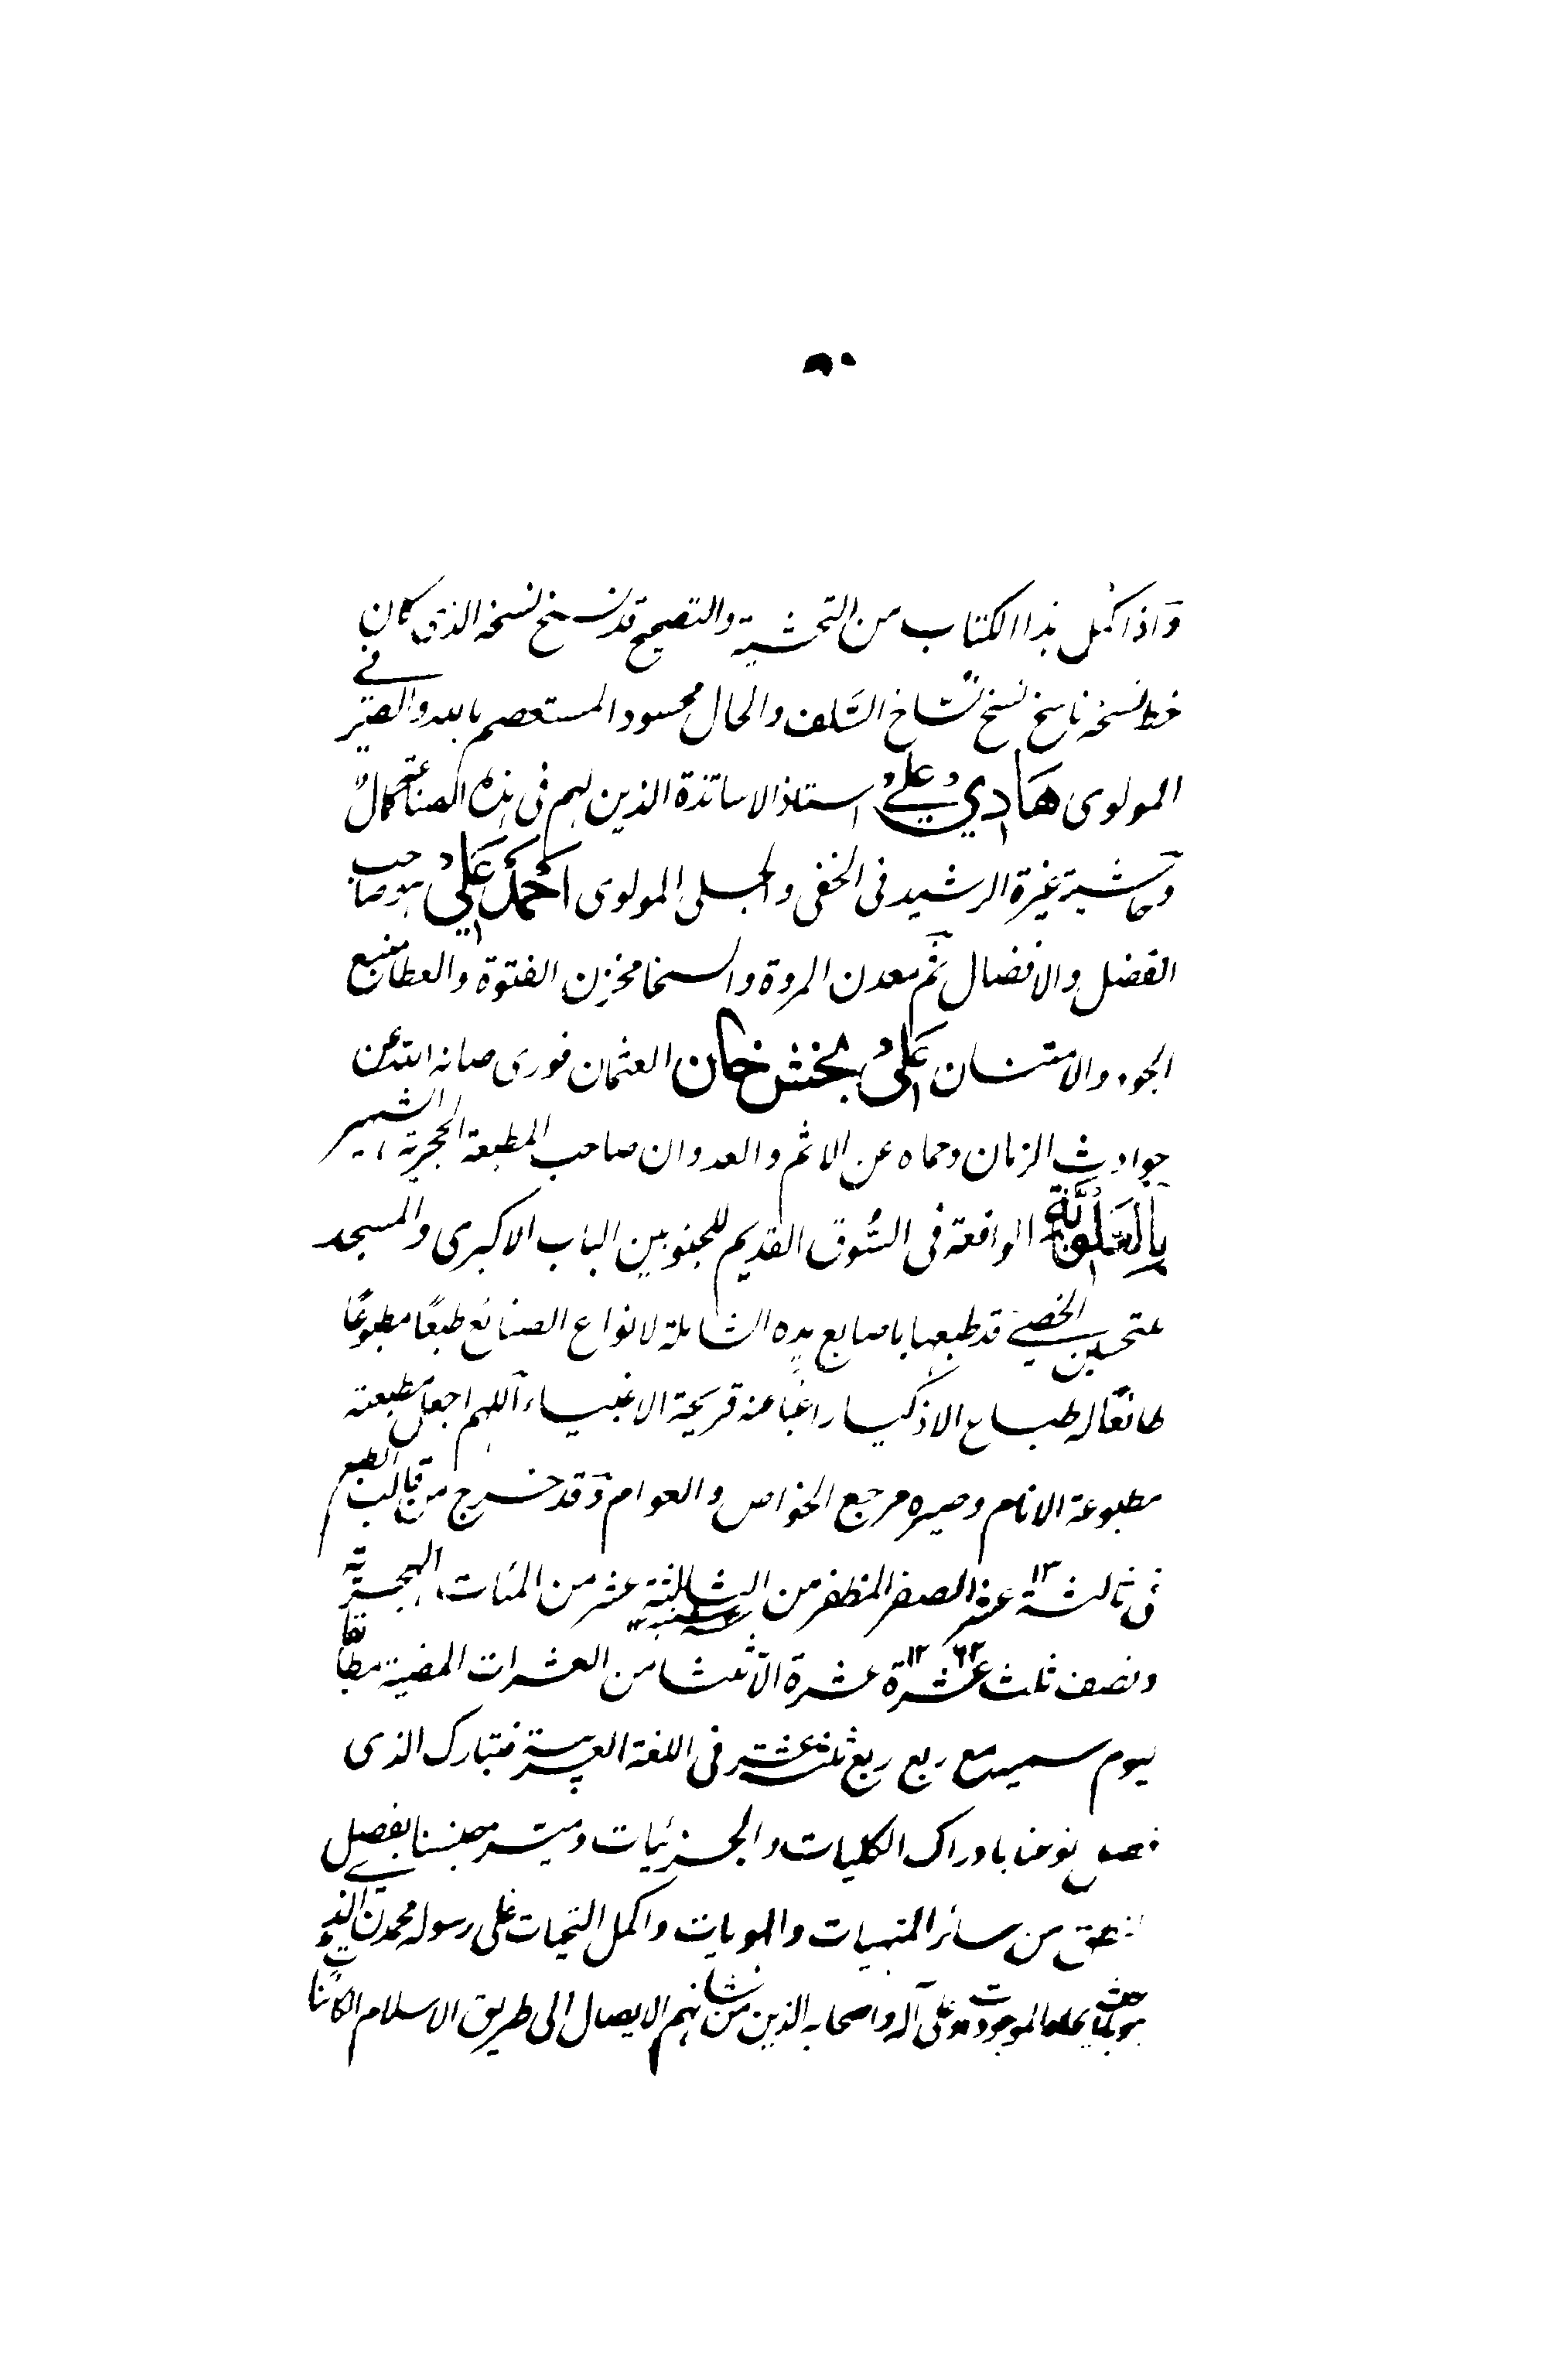 واذا كمل هذا الكتاب من التحشية والتصحيح قد نسخ نسخه الذى كان فى
خط نسخه ناسخ نسخ نساخ السلف والحال محسود المستعصم بالله والصير
المولوى هادي علي استاذ الاساتذة الذين لهم فى هذه الصناعة كمال
وحاشية غيرة الرشيد فى الخفى والجلى المولوى احمد علي هو صاحب
الفضل والافضال ثم معدن المروة والسخا مخزن الفتوة والعطا منبع
الجود والامتنان علي بخش خان العثمان فورى صانه الله عن
حوادث الزمان وحماه عن الاثم والعدوان صاحب المطبعة الحجرية الشهير
بالعلوية الواقعة فى السوق القديم للجنو بين الباب الاكبرى والمسجد
عتحسين الخصي قد طبعها باصابع يده الشاملة لانواع الصنائع طبعًا مطبوعًا
طائعًا له طباع الاذكيا راغبا عنه قريحة الاغبياء اللهم اجعل مطبعته
مطبوعة الانام وصيره مرجع الخواص والعوام وقد خرج من قالب الطبع
فى ثالثة عشر ١٣ الصفر المظفر من السنة الثالثة عشر من المئات الهجرية
ونصف ثلث عشرة ١٢ عشرة الا ثلثا من العشرات المضية مطابقا
ليوم سمیه مع ربع ربع ثلثه عشر فى اللغة العربية فتبارك الذى
فصل نوعنا بادراك الكليات والجزئيات وميز جنسنا بفصل
النطق من سائر المنهيات والهويات واكمل التحيات على رسوله محمدن الذى
الموجودات وعلى آله واصحابه الذين من شانهم الايصال الى طريق الاسلام